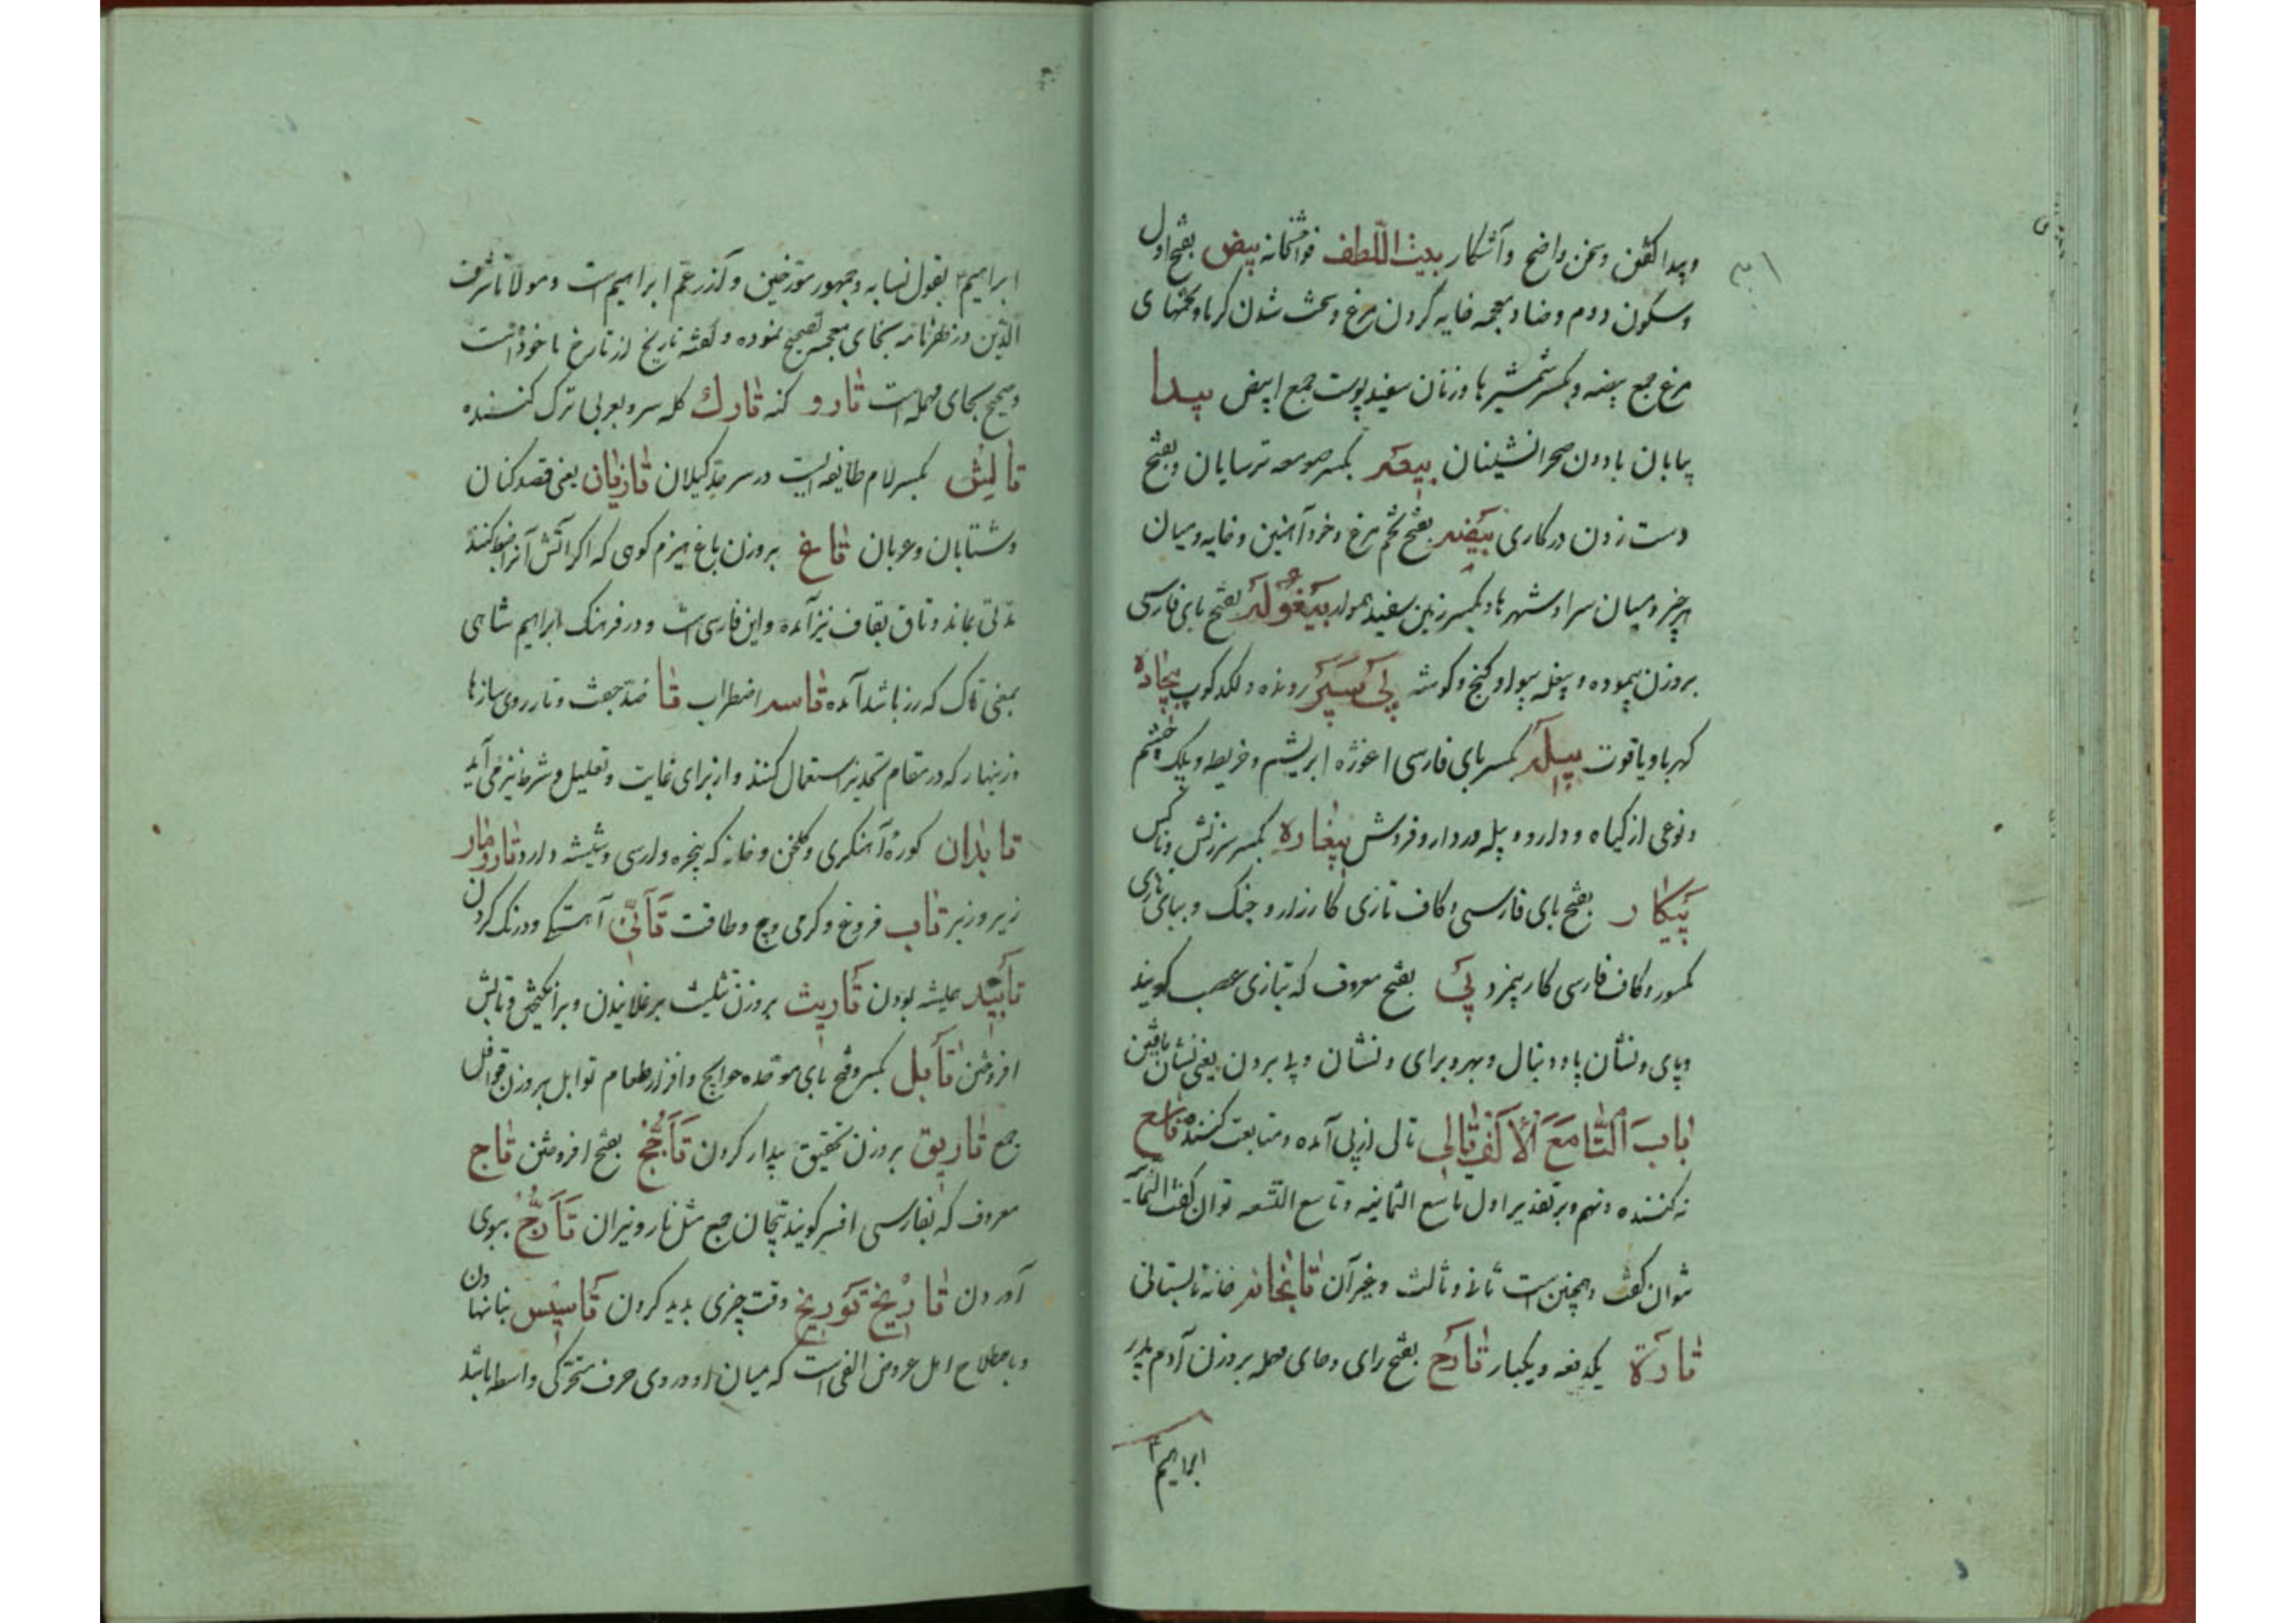 وپیدا کفتن وسخن واضح وآشکار بیت اللطف فواحشخانه بیض بفتح اول
وسکون دوم وضاد معجمه خایه کردن مرغ وسخت شدن کرما وتخمهای
مرغ جمع بیضه وبکسر شمشیرها وزنان سفید پوست جمع ابیض بیدا
بیابان بادون صحرانشینان بیعه بکسر صومعه ترسایان وبفتح
دست زدن در کاری بیضه بفتح تخم مرغ وخود آهنین وخایه ومیان
هر چیز ومیان سرا وشهرها وبکسر زمین سفید هموار بیغوله بفتح بای فارسی
بروزن پیموده وپیغله بیواو کنج وکوشه پی سپر رونده ولکدکوب بیجاده
کهربا ویاقوت پیله بکسر بای فارسی اغوزه ابریشم وخریطه وپلک چشم
ونوعی از کیاه ودارو وپیله ور دارو فروش بیغاره بکسر سرزنش وناکس
پیکار بفتح بای فارسی وکاف تازی کارزار وجنک وببای تازی
مکسور وکاف فارسی کار بیمزد پی بفتح معروف که بتازی عصب کویند
وپای ونشان پا ودنبال وبهر وبرای ونشان وپا بردن یعنی نشان یافتن
باب التا مع الالف تالی تالی از پی آمده ومتابعت کننده تاسع
نه کننده ونهم وبر تقدیر اول تاسع الثمانیه وتاسع التسعه توان کفت
نتوان کفت وهمچنین است ثانی وثالث وغیر آن تابخانه خانه تابستانی
تارة یکدفعه ویکبار تارح بفتح رای وحای مهمله بروزن آدم پدر
ابراهیم
ابراهیم بقول نسابه وجمهور مورخین وآذر عم ابراهیم است ومولانا شرف
الدین در ظفرنامه بخای معجمه تصحیح نموده وکفته تاریخ از تارخ ماخوذ است
وصحیح بحای مهمله است تارو کنه تارک کله سر وبعربی ترک کننده
تالش بکسر لام طایفه ایست در سرحد کیلان تازیان یعنی قصدکنان
وشتابان وعربان تاغ بروزن باغ هیزم کوهی که اکر آتش آنرا ضبط کنند
مدتی بماند وتاق بقاف نیز آمده واین فارسی است ودر فرهنک ابراهیم شاهی
بمعنی تاک که رز باشد آمده تاسه اضطراب تا ضد جفت وتار روی سازها
وزینهار که در مقام تحذیر استعمال کنند واز برای غایت وتعلیل وشرط نیز می آید
تابدان کورهٔ آهنکری وکلخن وخانه که پنجره وارسی وشیشه دارد تارومار
زیر وزبر تاب فروغ وکرمی وپیچ وطاقت تأنی آهستکی ودرنک کردن
تأبید همیشه بودن تأریث بروزن تثلیث برغلانیدن وبرانکیختن وآتش
افروختن تابل بکسر وفتح بای موحده حوایج وافزار طعام توابل بروزن قوافل
جمع تاریق بروزن تحقیق بیدار کردن تأجج بفتح افروختن تاج
معروف که بفارسی افسر کویند تیجان جمع مثل نار ونیران تأرج ببوی
آوردن تاریخ توریخ وقت چیزی پدید کردن تأسیس بنا نهادن
وباصطلاح اهل عروض الفی است که میان او وروی حرف متحرکی واسطه باشد